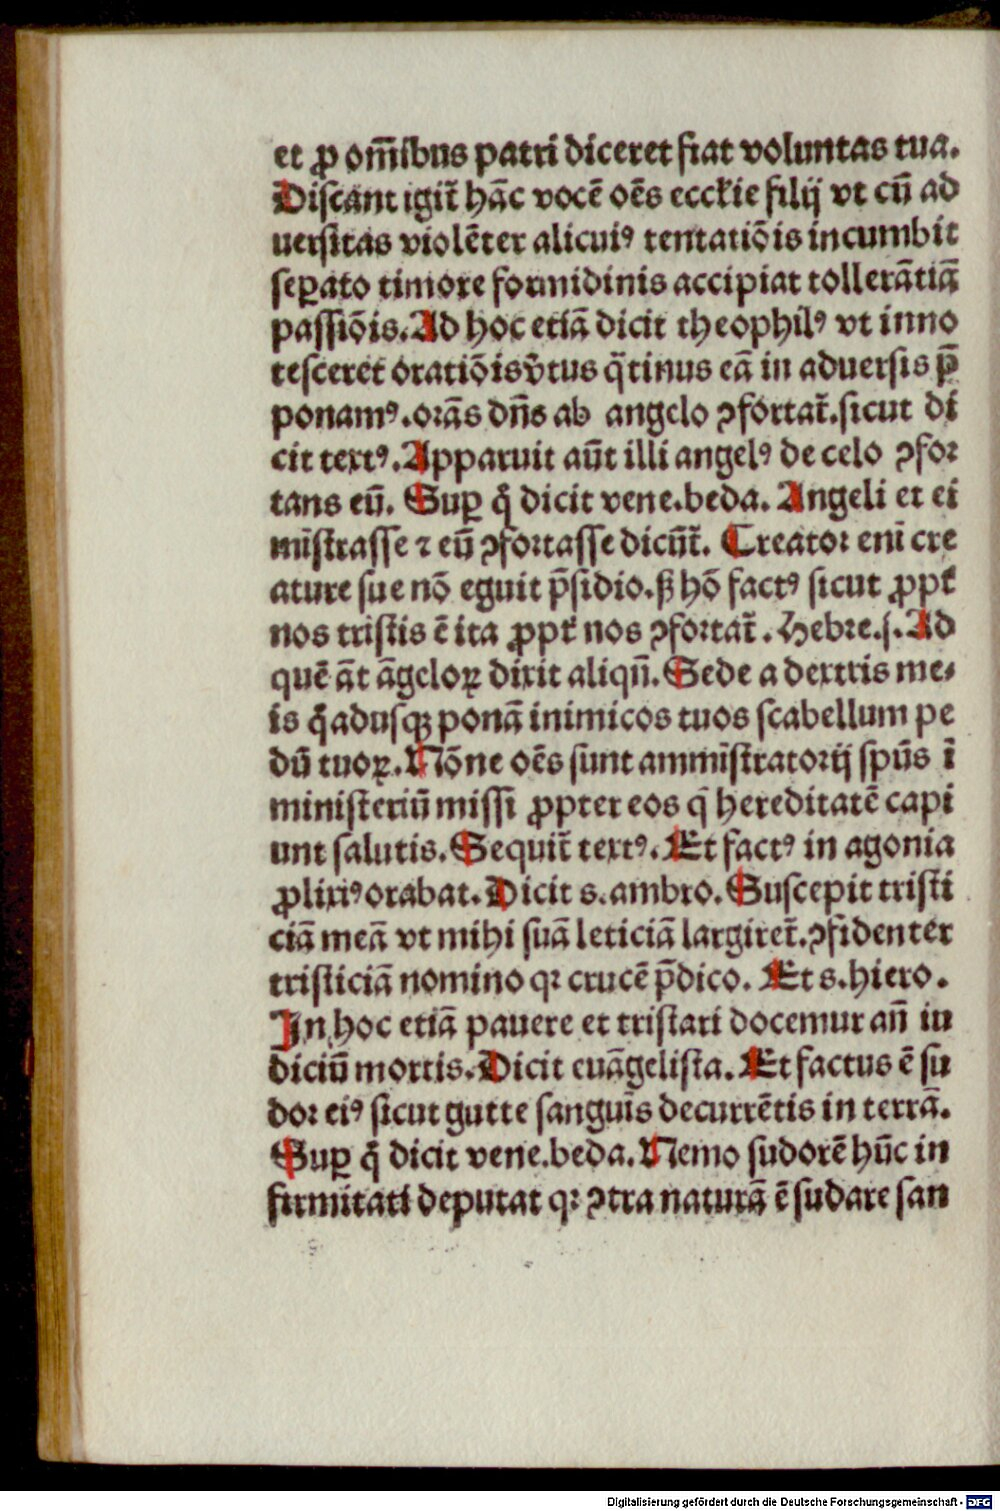 et ꝓ om̄ibus patri diceret fiat voluntas tua.
Discant igit᷑ hāc vocē oēs eccłie filij vt cū ad
uersitas violēter alicuiꝰ tentatiōis incumbit
seꝑato timore formidinis accipiat tollerātiā
passiōis. Ad hoc etiā dicit theophilꝰ vt inno
tesceret oratiōis v̄tus q̄tinus eā in aduersis p̄
ponamꝰ. orās dn̄s ab angelo ꝯfortat᷑. sicut di
cit textꝰ. Apparuit aūt illi angelꝰ de celo ꝯfor
tans eū. Suꝑ q̄ dicit vene. beda. Angeli et ei
mīstrasse ⁊ eū ꝯfortasse dicūt᷑. Creator eni cre
ature sue nō eguit p̄sidio. ß hō factꝰ sicut ꝓpt᷑
nos tristis ē ita ꝓpt᷑ nos ꝯfortat᷑. Hebre. j. Ad
quē āt āgeloꝝ dixit aliqn̄. Sede a dextris me⸗
is q̄adusqꝫ ponā inimicos tuos scabellum pe
dū tuoꝝ. Nōne oēs sunt ammīstratorij spūs ī
ministeriū missi ꝓpter eos q̄ hereditatē capi
unt salutis. Sequit᷑ textꝰ. Et factꝰ in agonia
ꝓlixiꝰ orabat. Dicit s. ambro. Suscepit tristi
ciā meā vt mihi suā leticiā largiret᷑. ꝯfidenter
tristiciā nomino qꝛ crucē p̄dico. Et s. hiero.
In hoc etiā pauere et tristari docemur an̄ iu
diciū mortis. Dicit euāgelista. Et factus ē su
dor eiꝰ sicut gutte sanguīs decurrētis in terrā.
Suꝑ q̄ dicit vene. beda. Nemo sudorē hūc in
firmitati deputat qꝛ ꝯtra naturā ē sudare san
Digitalisierung gefördert durch die Deutsche Forschungsgemeinschaft - DFG